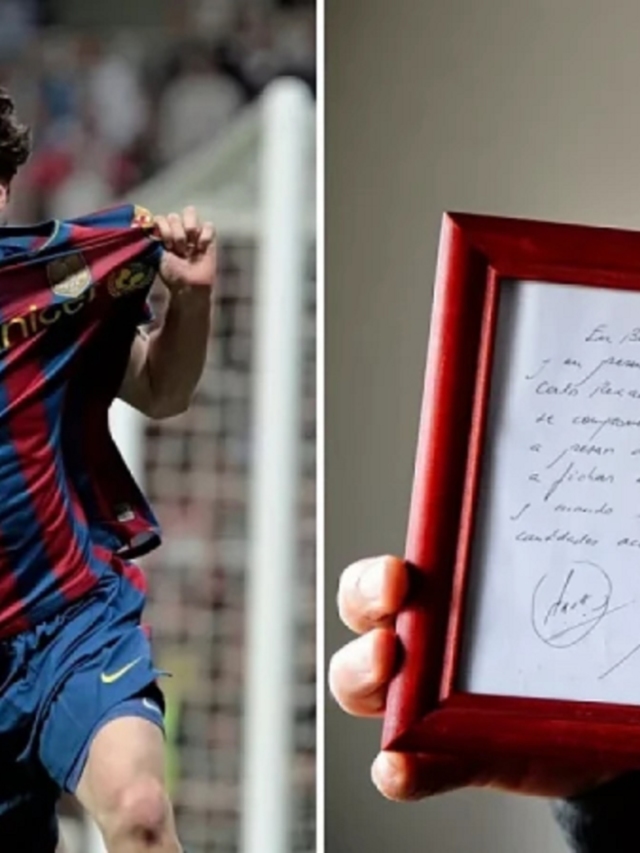 unicef
En B
y en presen
Carlo Rexac
se comprome
a pesar d
a fichar
y mando
cantidades ac